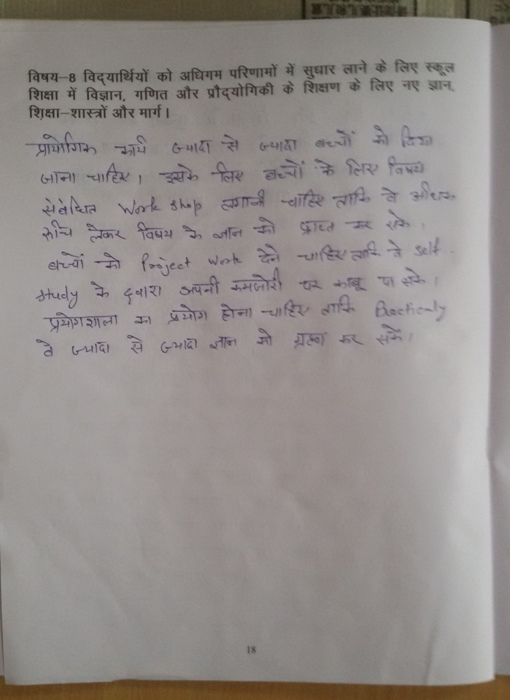 विषय–8 विद्यार्थियों को अधिगम परिणामों में सुधार लाने के लिए स्कूल
शिक्षा में विज्ञान, गणित और प्रौद्योगिकी के शिक्षण के लिए नए ज्ञान,
शिक्षा–शास्त्रों और मार्ग।
प्रायोगिक कार्य ज्यादा से ज्यादा बच्चों को दिया
जाना चाहिए। इसके लिए बच्चों के लिए विषय
संबंधित Work shop लगानी चाहिए ताकि वे अधिक
रूचि लेकर विषय के ज्ञान को प्राप्त कर सके।
बच्चों को Project Work देने चाहिए ताकि वे self
study के द्वारा अपनी कमजोरी पर काबू पा सके।
प्रयोगशाला का प्रयोग होना चाहिए ताकि Practicaly
वे ज्यादा से ज्यादा ज्ञान को ग्रहण कर सकें।
18